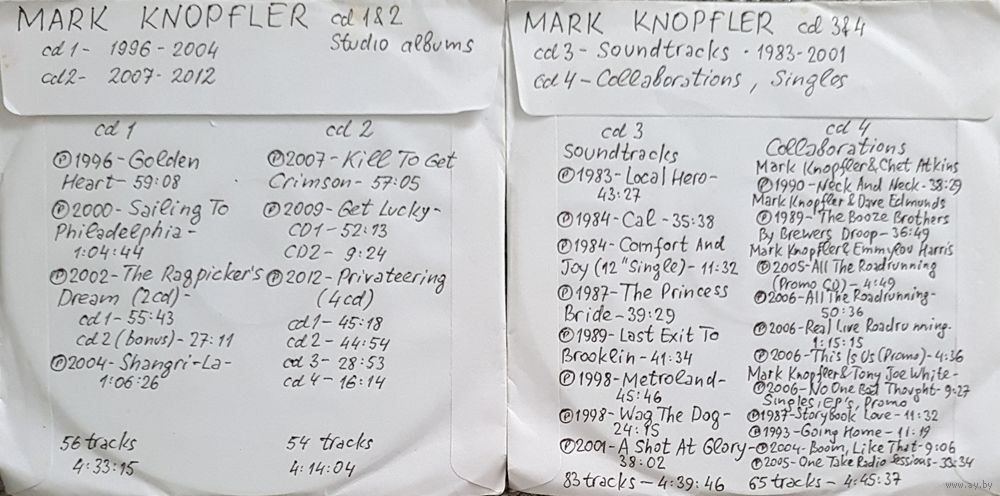 MARK KNOPFLER cd 1&2
Studio albums
cd 1 - 1996 - 2004
cd2 - 2007 - 2012
cd 1
Ⓟ1996 - Golden
Heart - 59:08
Ⓟ2000 - Sailing To
Philadelphia -
1:04:44
Ⓟ2002 - The Ragpicker's
Dream (2cd) -
cd 1 - 55:43
cd 2 (bonus) - 27:11
Ⓟ2004 - Shangri-La -
1:06:26
56 tracks
4:33:15
cd 2
Ⓟ2007 - Kill To Get
Crimson - 57:05
Ⓟ2009 - Get Lucky -
CD1 - 52:13
CD2 - 9:24
Ⓟ2012 - Privateering
(4cd)
cd 1 - 45:18
cd 2 - 44:54
cd 3 - 28:53
cd 4 - 16:14
54 tracks
4:14:04
MARK KNOPFLER cd 3&4
cd 3 - Soundtracks · 1983 - 2001
cd 4 - Collaborations, Singles
cd 3
Soundtracks
Ⓟ1983 - Local Hero -
43:27
Ⓟ1984 - Cal - 35:38
Ⓟ1984 - Comfort And
Joy (12" Single) - 11:32
Ⓟ1987 - The Princess
Bride - 39:29
Ⓟ1989 - Last Exit To
Brooklin - 41:34
Ⓟ1998 - Metroland -
45:46
Ⓟ1998 - Wag The Dog -
24:15
Ⓟ2001 - A Shot At Glory -
38:02
83 tracks - 4:39:46
cd 4
Collaborations
Mark Knopfler & Chet Atkins
Ⓟ1990 - Neck And Neck - 38:29
Mark Knopfler & Dave Edmunds
Ⓟ1989 - The Booze Brothers
By Brewers Droop - 36:49
Mark Knopfler & Emmylou Harris
Ⓟ2005 - All The Roadrunning
(Promo CD) - 4:49
Ⓟ2006 - All The Roadrunning -
50:36
Ⓟ2006 - Real Live Roadrunning -
1:15:15
Ⓟ2006 - This Is Us (Promo) - 4:36
Mark Knopfler & Tony Joe White -
Ⓟ2006 - No One Bad Thought - 9:27
Singles, EP's, Promo
Ⓟ1987 - Storybook Love - 11:32
Ⓟ1993 - Going Home - 11:19
Ⓟ2004 - Boom, Like That - 9:06
Ⓟ2005 - One Take Radio Sessions - 33:34
65 tracks - 4:45:37
www.ay.by